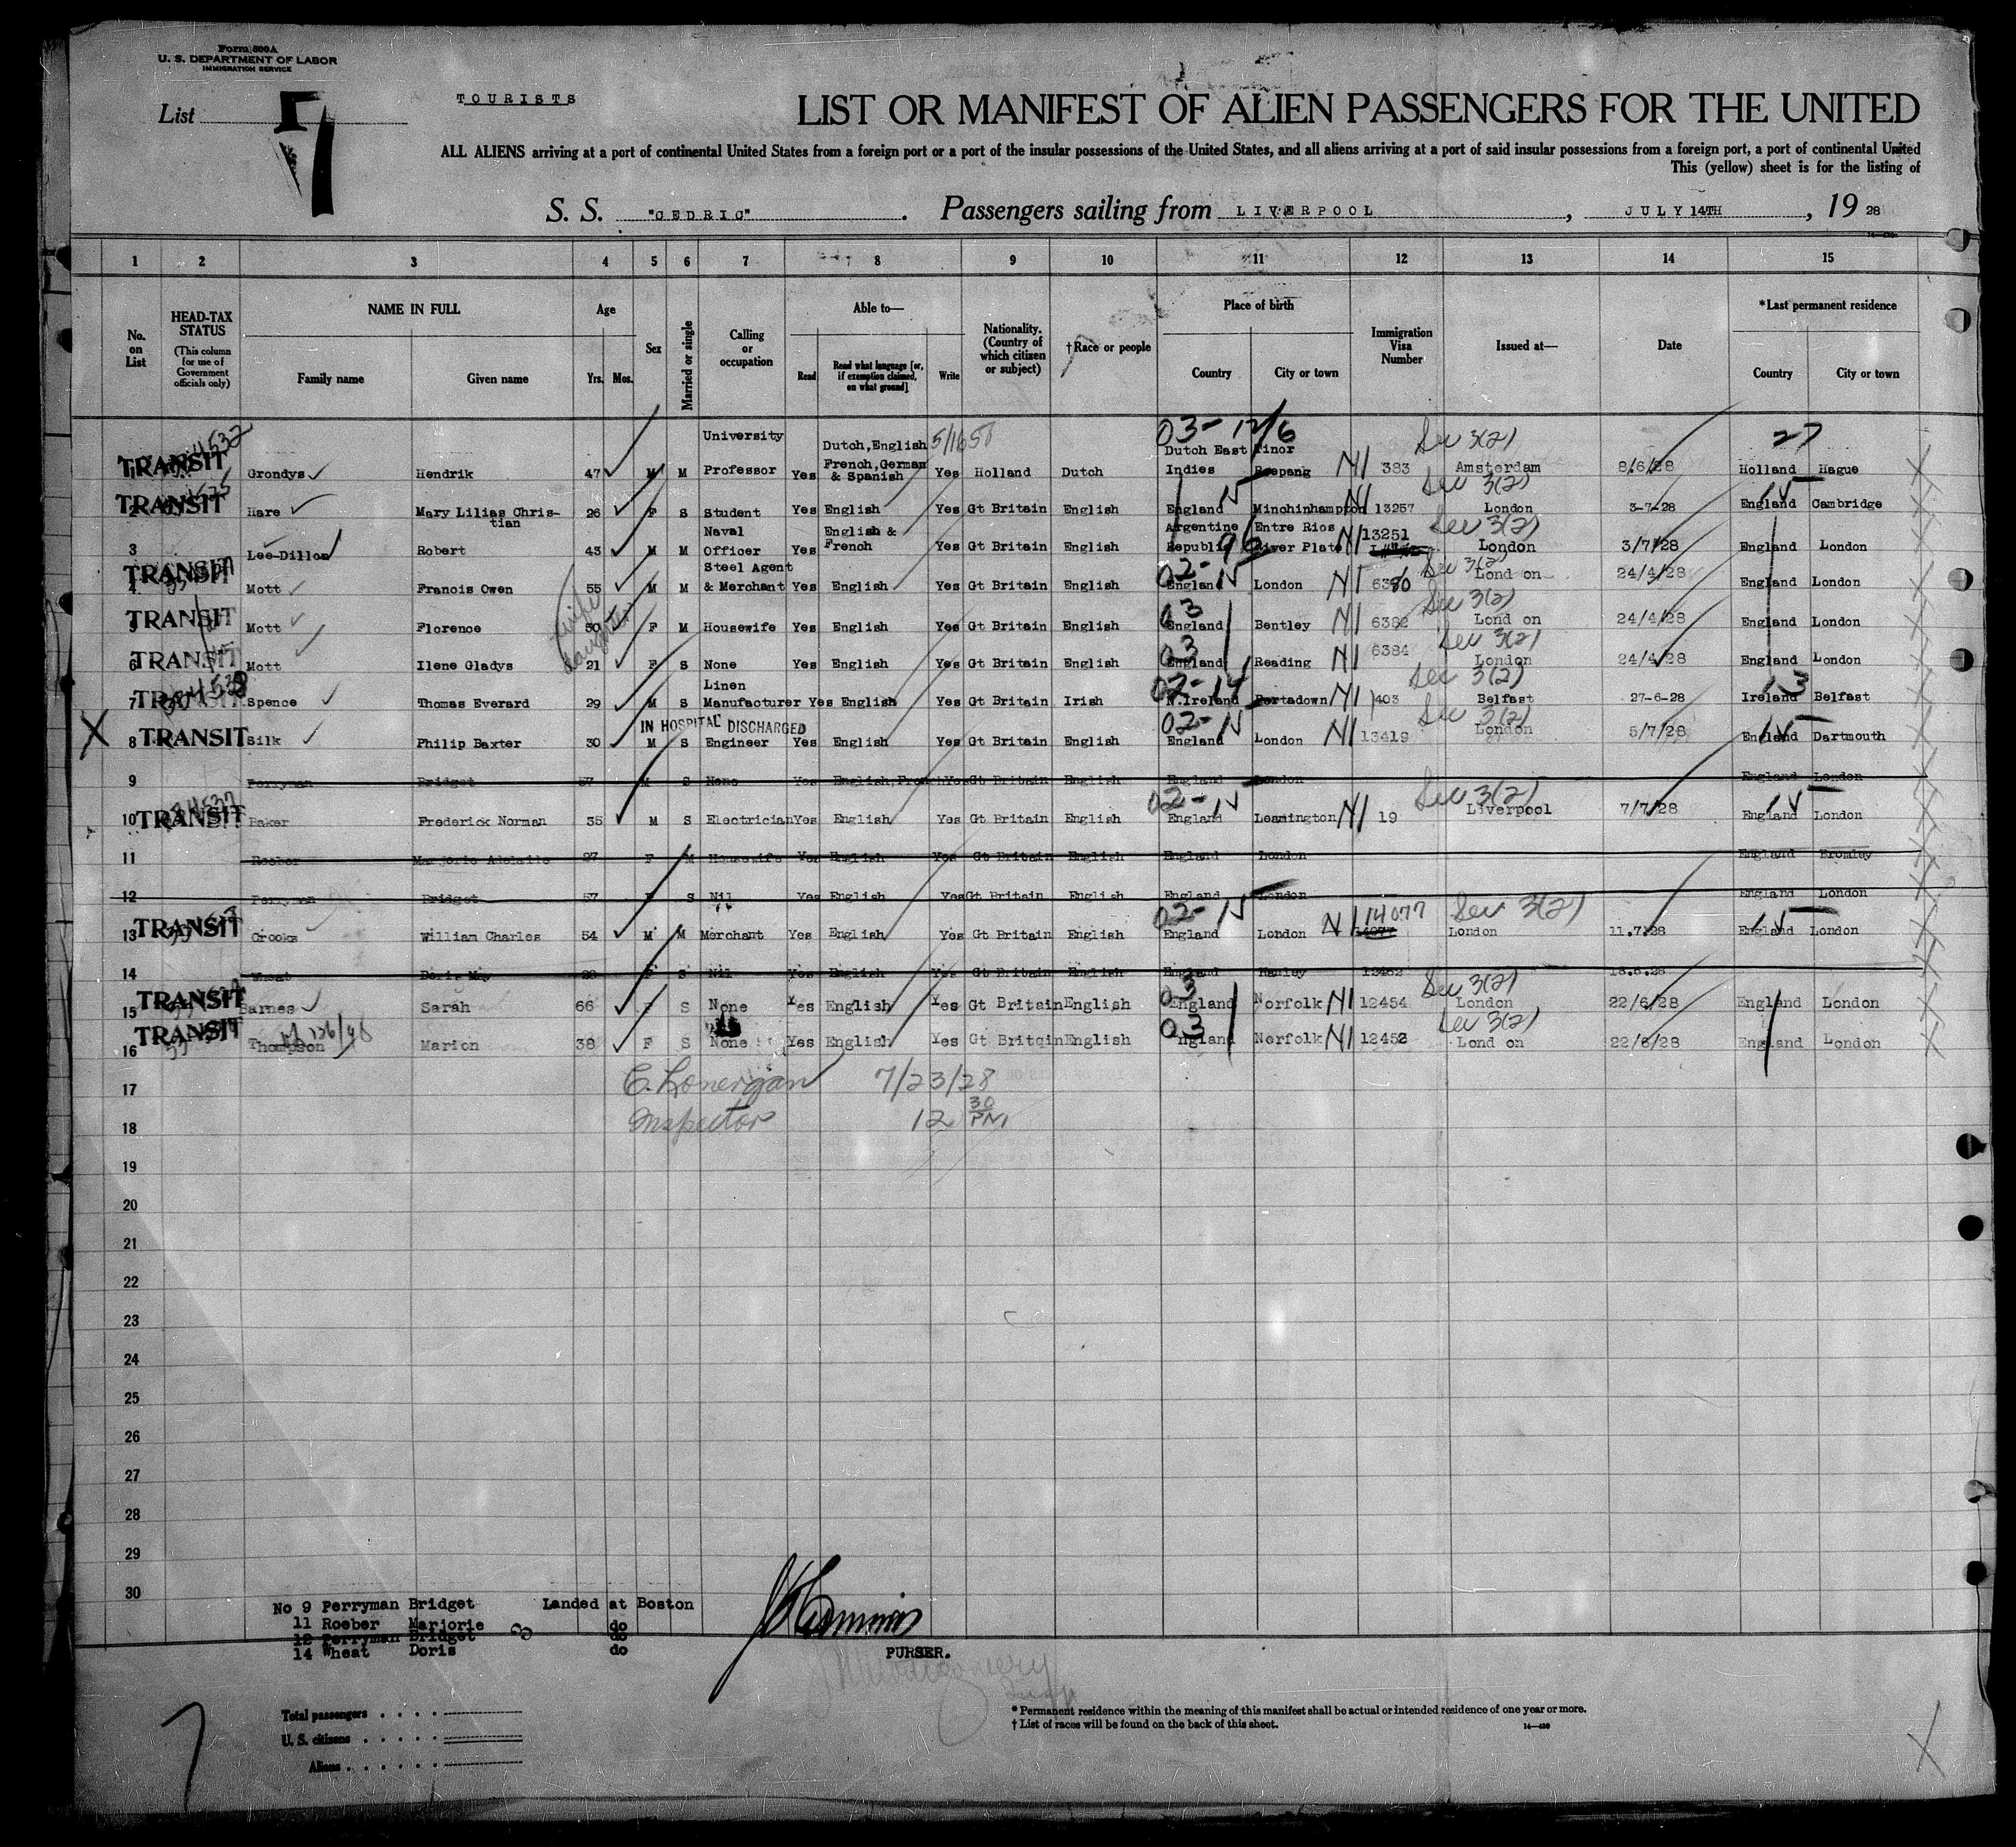 Form 500A
U. S. DEPARTMENT OF LABOR
IMMIGRATION SERVICE
List
TOURISTS
LIST OR MANIFEST OF ALIEN PASSENGERS FOR THE UNITED
ALL ALIENS arriving at a port of continental United States from a foreign port or a port of the insular possessions of the United States, and all aliens arriving at a port of said insular possessions from a foreign port, a port of continental United
This (yellow) sheet is for the listing of
S. S. "CEDRIC". Passengers sailing from LIVERPOOL, JULY 14TH, 19 28
1 2 3 4 5 6 7 8 9 10 11 12 13 14 15
No. on List
HEAD-TAX STATUS (This column for use of Government officials only)
NAME IN FULL Family name Given name
Age Yrs. Mos.
Sex
Married or single
Calling or occupation
Able to— Read Read what language [or, if exemption claimed, on what ground] Write
Nationality. (Country of which citizen or subject)
†Race or people
Place of birth Country City or town
Immigration Visa Number
Issued at—
Date
*Last permanent residence Country City or town
TRANSIT Grondys Hendrik 47 M M University Professor Yes Dutch, English French, German & Spanish Yes Holland Dutch Dutch East Indies NI 383 Sec 3(2) Amsterdam 8/6/28 27 Holland Hague
2 TRANSIT Hare Mary Lilias Christian 26 F S Student Yes English Yes Gt Britain English England Minchinhampton NI 13257 Sec 3(2) London 3-7-28 England Cambridge
3 Lee-Dillon Robert 43 M M Naval Officer Yes English & French Yes Gt Britain English Argentine Republic Entre Rios River Plate NI 13251 Sec 3(2) London 3/7/28 England London
4 TRANSIT Mott Francis Owen 55 M M Steel Agent & Merchant Yes English Yes Gt Britain English England London NI 6380 Sec 3(2) Lond on 24/4/28 England London
5 TRANSIT Mott Florence wife 50 F M Housewife Yes English Yes Gt Britain English 03 England Bentley NI 6382 Sec 3(2) Lond on 24/4/28 England London
6 TRANSIT Mott Ilene Gladys daughter 21 F S None Yes English Yes Gt Britain English 03 England Reading NI 6384 Sec 3(2) London 24/4/28 England London
7 TRANSIT Spence Thomas Everard 29 M S Linen Manufacturer Yes English Yes Gt Britain Irish 02-14 N.Ireland Portadown NI 403 Sec 3(2) Belfast 27-6-28 Ireland Belfast
IN HOSPITAL DISCHARGED
X 8 TRANSIT Silk Philip Baxter 30 M S Engineer Yes English Yes Gt Britain English England London NI 13419 Sec 3(2) London 5/7/28 England Dartmouth
9 Perryman Bridget 57 M S None Yes English, French Yes Gt Britain English England London England London
10 TRANSIT Baker Frederick Norman 35 M S Electrician Yes English Yes Gt Britain English England Leamington NI 19 Sec 3(2) Liverpool 7/7/28 England London
11 Roeber Marjorie Adelaide 27 F M Housewife Yes English Yes Gt Britain English England London England Bromley
12 Perryman Bridget 57 F S Nil Yes English Yes Gt Britain English England London England London
13 TRANSIT Crooks William Charles 54 M M Merchant Yes English Yes Gt Britain English England London NI 14077 Sec 3(2) London 11.7.28 England London
14 Wheat Doris May 28 F S Nil Yes English Yes Gt Britain English England Hanley 12462
15 TRANSIT Barnes Sarah 66 F S None Yes English Yes Gt Britain English 03 England Norfolk NI 12454 Sec 3(2) London 22/6/28 England London
16 TRANSIT Thompson Marion 38 F S None Yes English Yes Gt Britain English 03 England Norfolk NI 12452 Sec 3(2) Lond on 22/6/28 England London
17 C. Lonergan 7/23/28
18 Inspector 12 30 PM
19
20
21
22
23
24
25
26
27
28
29
30
No 9 Perryman Bridget Landed at Boston
11 Roeber Marjorie do
12 Perryman Bridget do
14 Wheat Doris do
3
PURSER.
Total passengers
U. S. citizens
Aliens
* Permanent residence within the meaning of this manifest shall be actual or intended residence of one year or more.
† List of races will be found on the back of this sheet.
14—430